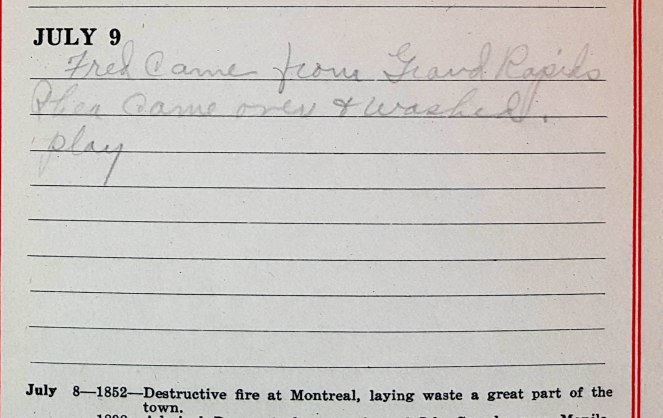 JULY 9
Fred Came from Grand Rapids
Came over & washed.
play
July 8—1852—Destructive fire at Montreal, laying waste a great part of the
town.